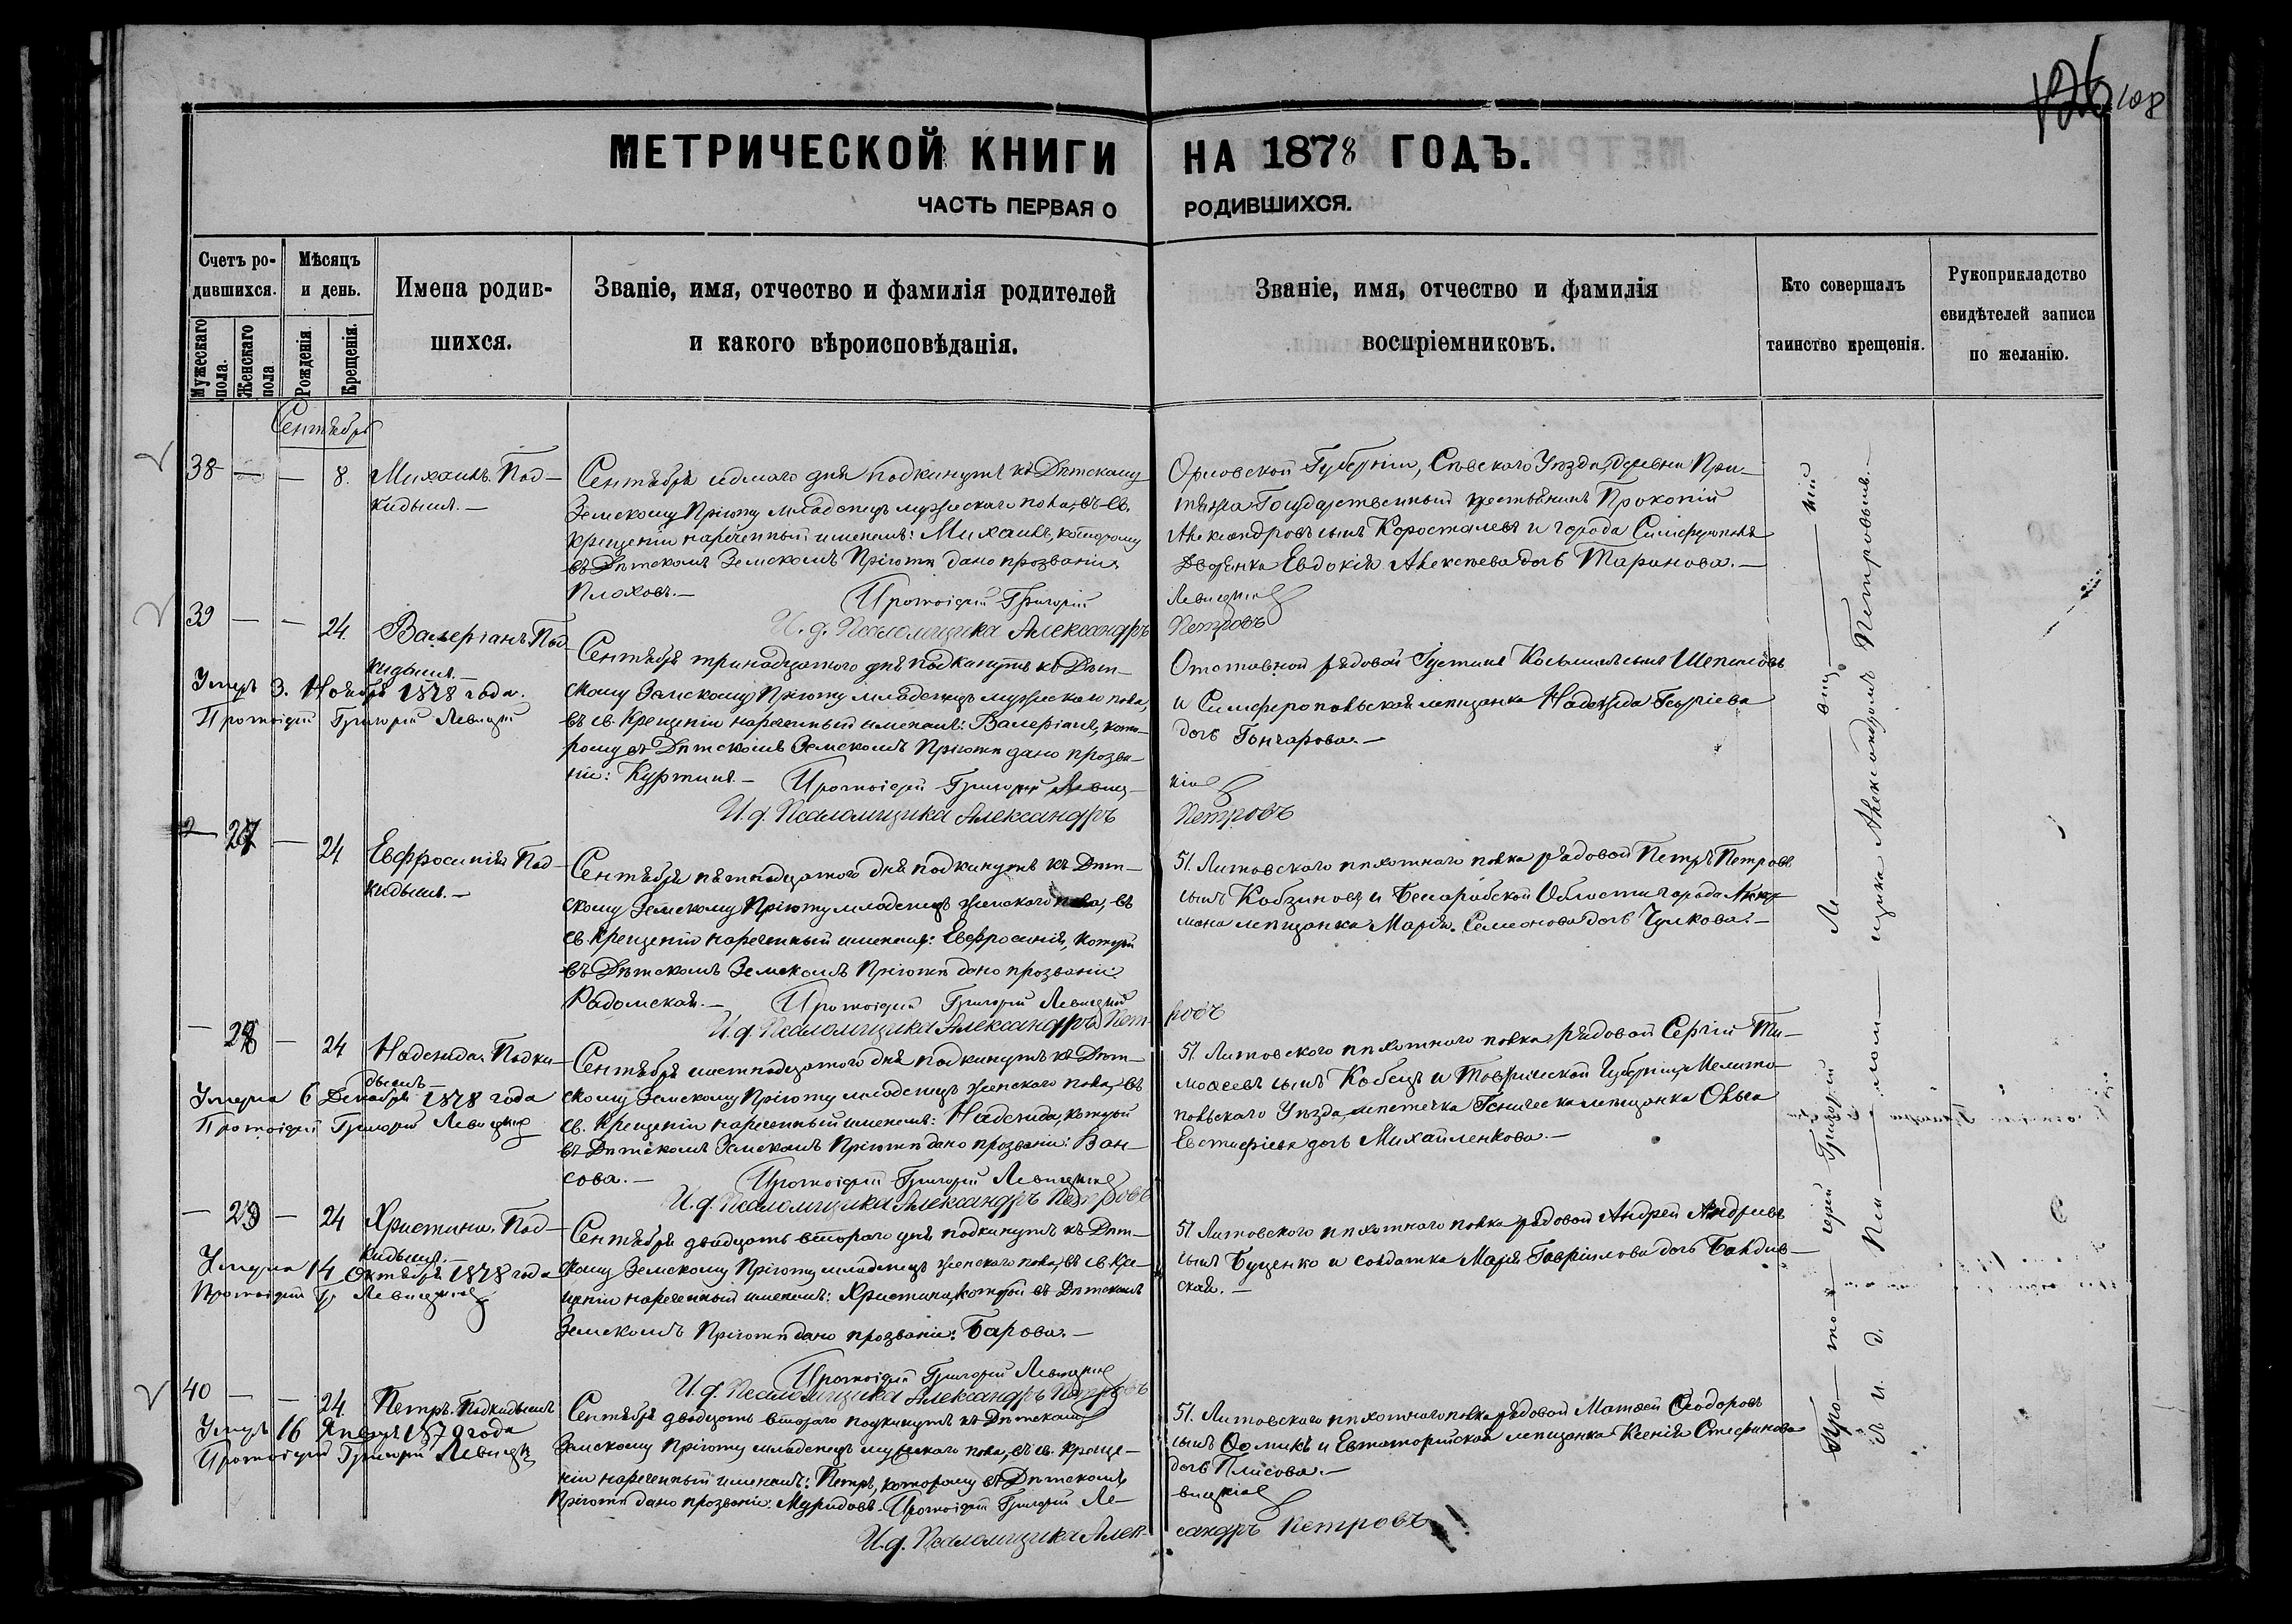 126 108
МЕТРИЧЕСКОЙ КНИГИ НА 1878 ГОДЪ.
ЧАСТЬ ПЕРВАЯ О РОДИВШИХСЯ.
Счетъ родившихся.
Мужескаго пола.
Женскаго пола
Мѣсяцъ и день.
Рожденія.
Крещенія.
Имена родив-
шихся.
Званіе, имя, отчество и фамилія родителей
и какого вѣроисповѣданія.
Званіе, имя, отчество и фамилія
воспріемниковъ.
Кто совершалъ
таинство крещенія.
Рукоприкладство
свидѣтелей записи
по желанію.
Сентябрь
38 — — 8. Михаилъ. Под-
кидышъ.—
Сентября седмаго дня подкинутъ къ Дѣтскому
Земскому Пріюту младенецъ мужескаго пола, въ св.
крещеніи нареченный именемъ: Михаилъ, которому
въ Дѣтскомъ Земскомъ Пріютѣ дано прозваніе
Плоховъ.—
Орловской Губерніи, Сѣвскаго Уѣзда, деревни При-
Государственный крестьянинъ Прокопій
Александровъ сынъ Коросталевъ и города Симферополя
Дворянка Евдокія Алексѣева дочь Таранова.—
Протоіерей Григорій Левицкій
И. д. Псаломщика Александръ Петровъ
39 — — 24. Валеріанъ Под-
кидышъ.—
Умеръ 3. Ноября 1878 года.
Протоіерей Григорій Левицкій
Сентября тринадцатаго дня подкинутъ къ Дѣт-
скому Земскому Пріюту младенецъ мужескаго пола,
въ св. Крещеніи нареченный именемъ: Валеріанъ, кото-
рому въ Дѣтскомъ Земскомъ Пріютѣ дано прозва-
ніе: Куртинъ.—
Отставной рядовой Густинъ Косьминъ сынъ Шепилевъ
и Симферопольская мѣщанка Надежда Георгіева
дочь Гончарова.—
Протоіерей Григорій Левицкій
И. д. Псаломщика Александръ Петровъ
— 27 — 24 Евфросинія Под-
кидышъ.—
Сентября пятнадцатаго дня подкинутъ къ Дѣт-
скому Земскому Пріюту младенецъ женскаго пола, въ
св. Крещеніи нареченный именемъ: Евфросинія, которой
въ Дѣтскомъ Земскомъ Пріютѣ дано прозваніе:
Радомская.—
51. Литовскаго пѣхотнаго полка рядовой Петръ Петровъ
сынъ Кобзиновъ и Бессарабской Области города Аккер-
мана мѣщанка Марія Семенова дочь Чулкова.—
Протоіерей Григорій Левицкій
И. д. Псаломщика Александръ Петровъ
— 28 — 24 Надежда Подки-
дышъ—
Умерла 6 Декабря 1878 года
Протоіерей Григорій Левицкій
Сентября шестнадцатаго дня подкинутъ къ Дѣт-
скому Земскому Пріюту младенецъ женскаго пола, въ
св. Крещеніи нареченный именемъ: Надежда, которой
въ Дѣтскомъ Земскомъ Пріютѣ дано прозваніе: Ван-
сова.—
51. Литовскаго пѣхотнаго полка рядовой Сергій Ти-
моѳеевъ сынъ Кобецъ и Таврической Губерніи, Мелито-
польскаго Уѣзда, мѣстечка Геническа мѣщанка Ольга
Евстафіева дочь Михайленкова.—
Протоіерей Григорій Левицкій
И. д. Псаломщика Александръ Петровъ
— 29 — 24 Христина. Под-
кидышъ.—
Умерла 14 Октября 1878 года
Протоіерей Гр Левицкій
Сентября двадцать втораго дня подкинутъ къ Дѣт-
скому Земскому Пріюту младенецъ женскаго пола, въ св. Кре-
щеніи нареченный именемъ: Христина, которой въ Дѣтскомъ
Земскомъ Пріютѣ дано прозваніе: Барова.—
51 Литовскаго пѣхотнаго полка рядовой Андрей Андреевъ
сынъ Буценко и солдатка Марія Гавріилова дочь Бандив-
ская.—
Протоіерей Григорій Левицкій
И. д. Псаломщика Александръ Петровъ
40 — — 24. Петръ. Подкидышъ
Умеръ 16 Января 1879 года
Протоіерей Григорій Левицкій
Сентября двадцать втораго подкинутъ къ Дѣтскому
Земскому Пріюту младенецъ мужескаго пола, въ св. Креще-
ніи нареченный именемъ: Петръ, которому въ Дѣтскомъ
Пріютѣ дано прозваніе: Муридовъ.
51. Литовскаго пѣхотнаго полка рядовой Матѳей Ѳеодоровъ
сынъ и Евпаторійская мѣщанка Ксенія Стефанова
дочь Плисова.—
Протоіерей Григорій Левицкій
И. д. Псаломщика Александръ Петровъ
Протоіерей Григорій Левицкій
съ и. д. Псаломщика Александромъ Петровымъ.—